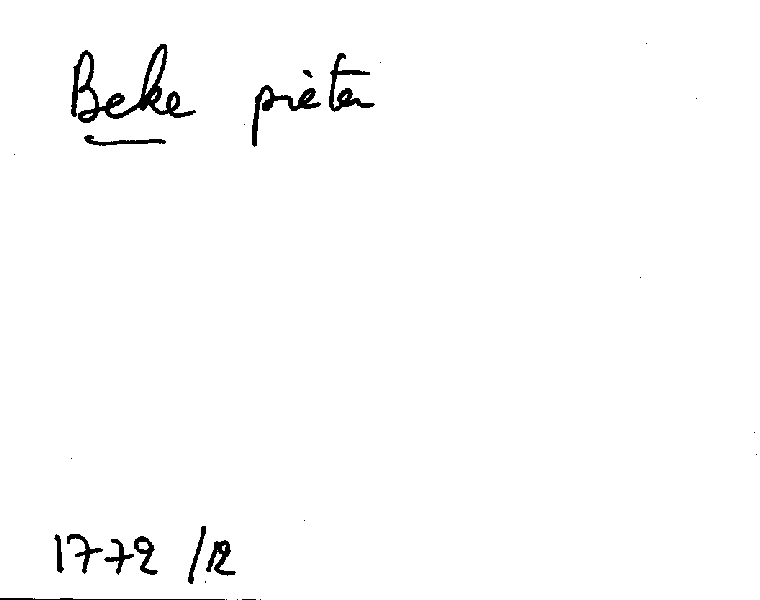 Beke pieter
1772 /12